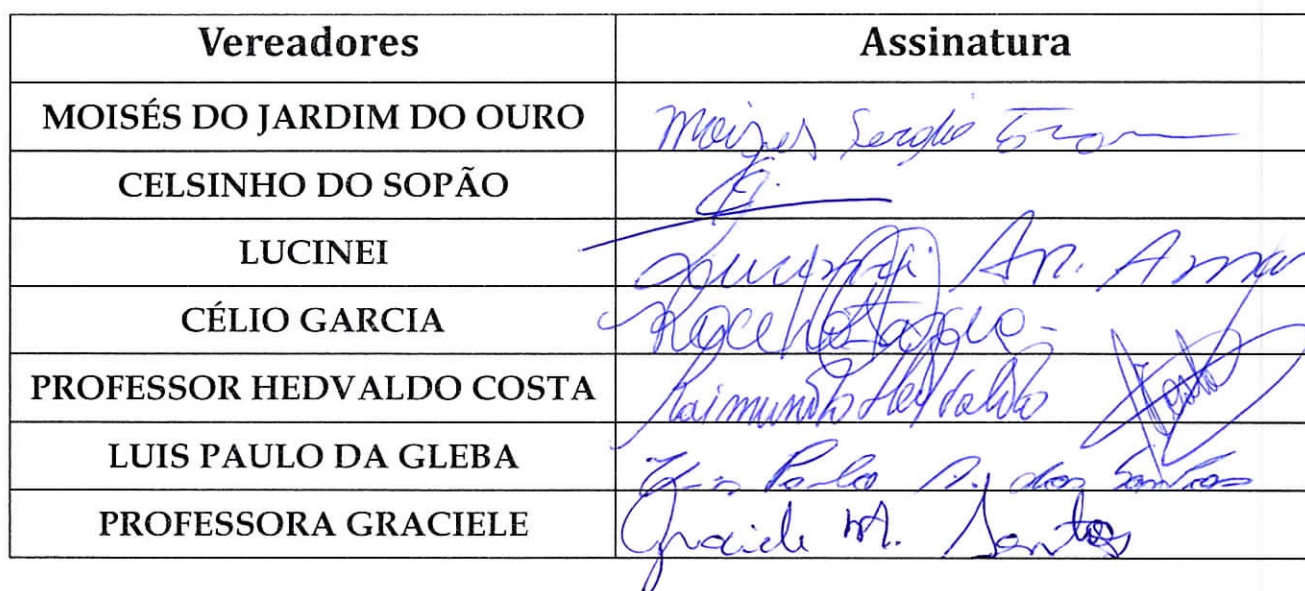 Vereadores Assinatura
MOISÉS DO JARDIM DO OURO Moizes Sergio
CELSINHO DO SOPÃO
LUCINEI An.
CÉLIO GARCIA
PROFESSOR HEDVALDO COSTA Raimundo Hedvaldo Costa
LUIS PAULO DA GLEBA Luis Paulo A. dos Santos
PROFESSORA GRACIELE Graciele M. Santos